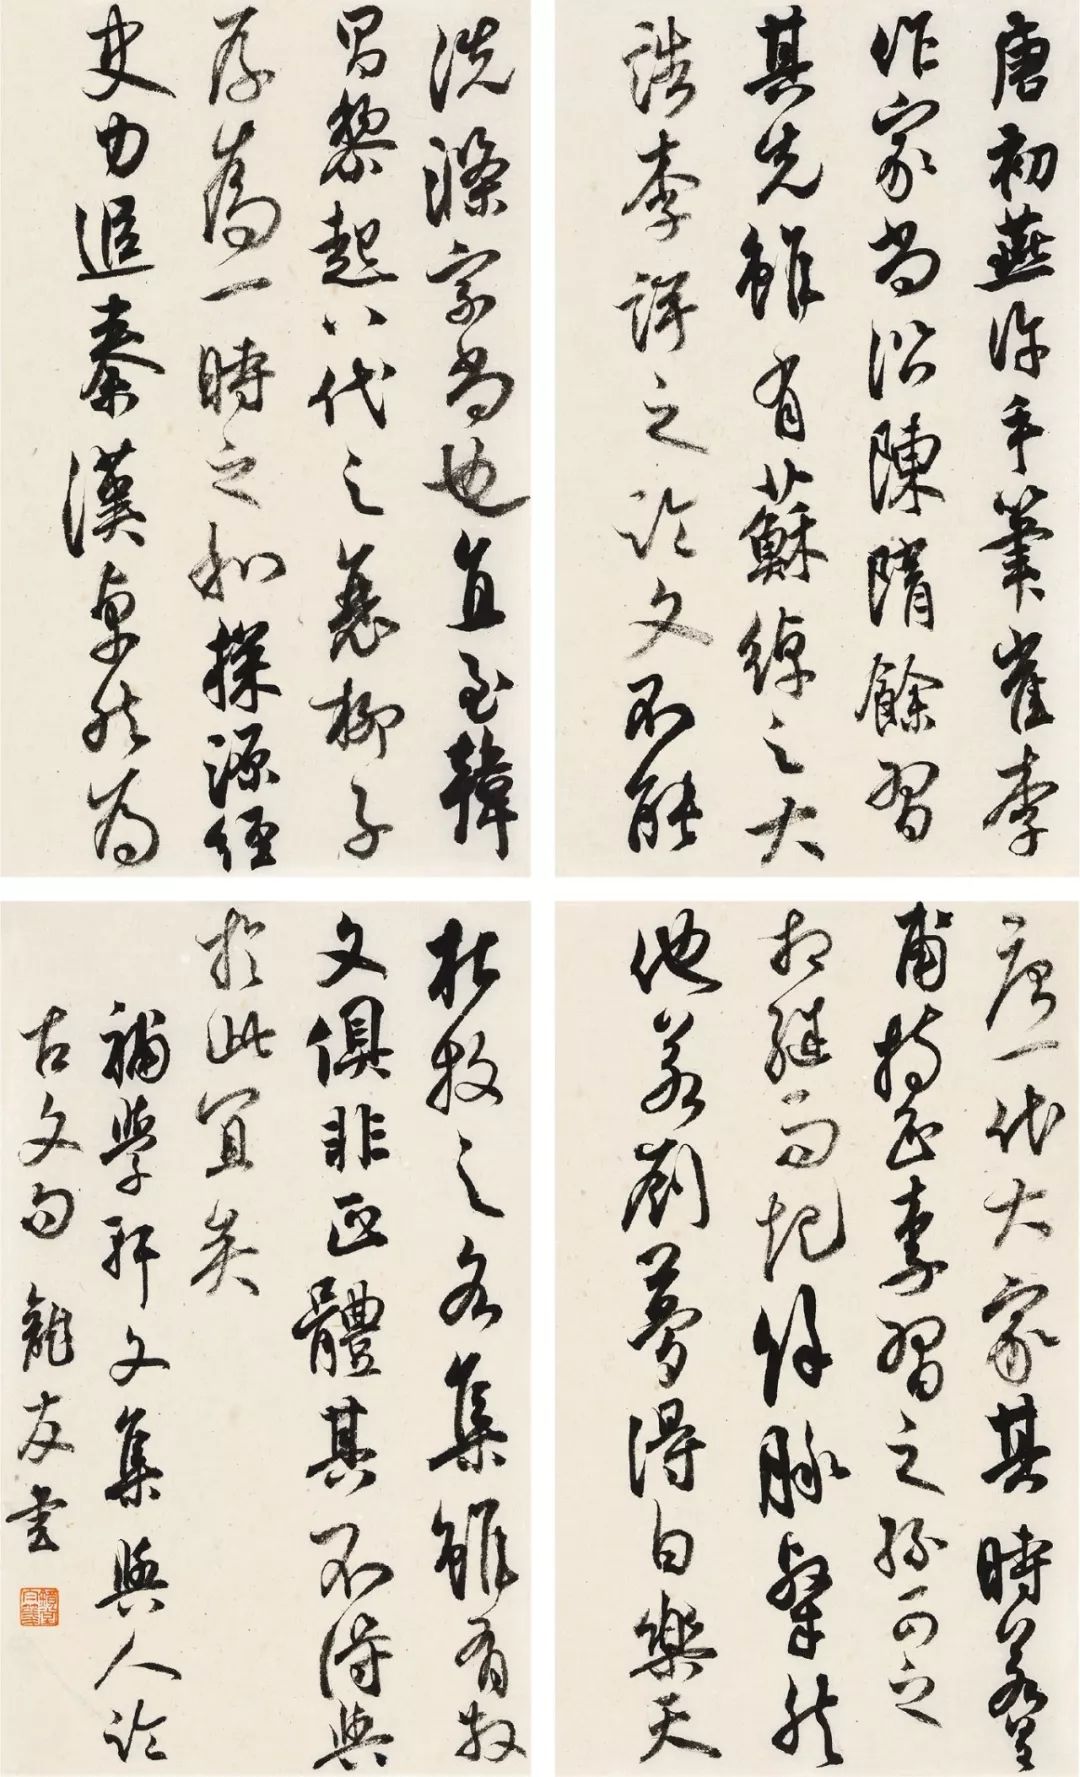 唐初燕許手筆崔李
作家尚沿陳隋餘習
其先雖有蘇綽之大
誥李諤之論文不能
洗滌宗尚也直至韓
昌黎起八代之衰柳子
厚為一時之和探源經
史力追秦漢卓然為
唐一代大家其時若皇
甫持正李習之孫可之
相繼而起條脈粲然
他若劉夢得白樂天
杜牧之各集雖有散
文俱非正體其不得與
於此宜矣
補學軒文集與人論
古文句 龍友書